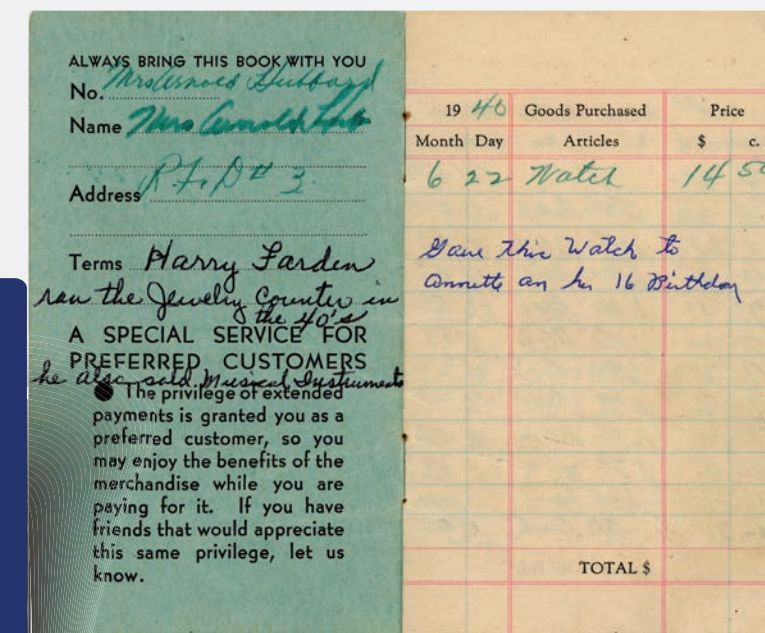 ALWAYS BRING THIS BOOK WITH YOU
No. Mrs Arnold Hubbard
Name Mrs Arnold
Address R.F.D # 3
Terms Harry Farden
ran the Jewelry Counter in
the 40's
A SPECIAL SERVICE FOR
PREFERRED CUSTOMERS
he also sold Musical Instruments
The privilege of extended
payments is granted you as a
preferred customer, so you
may enjoy the benefits of the
merchandise while you are
paying for it. If you have
friends that would appreciate
this same privilege, let us
know.
1940 Goods Purchased Price
Month Day Articles $ c.
6 22 Watch 14 50
Gave this Watch to
Annette on her 16 Birthday
TOTAL $